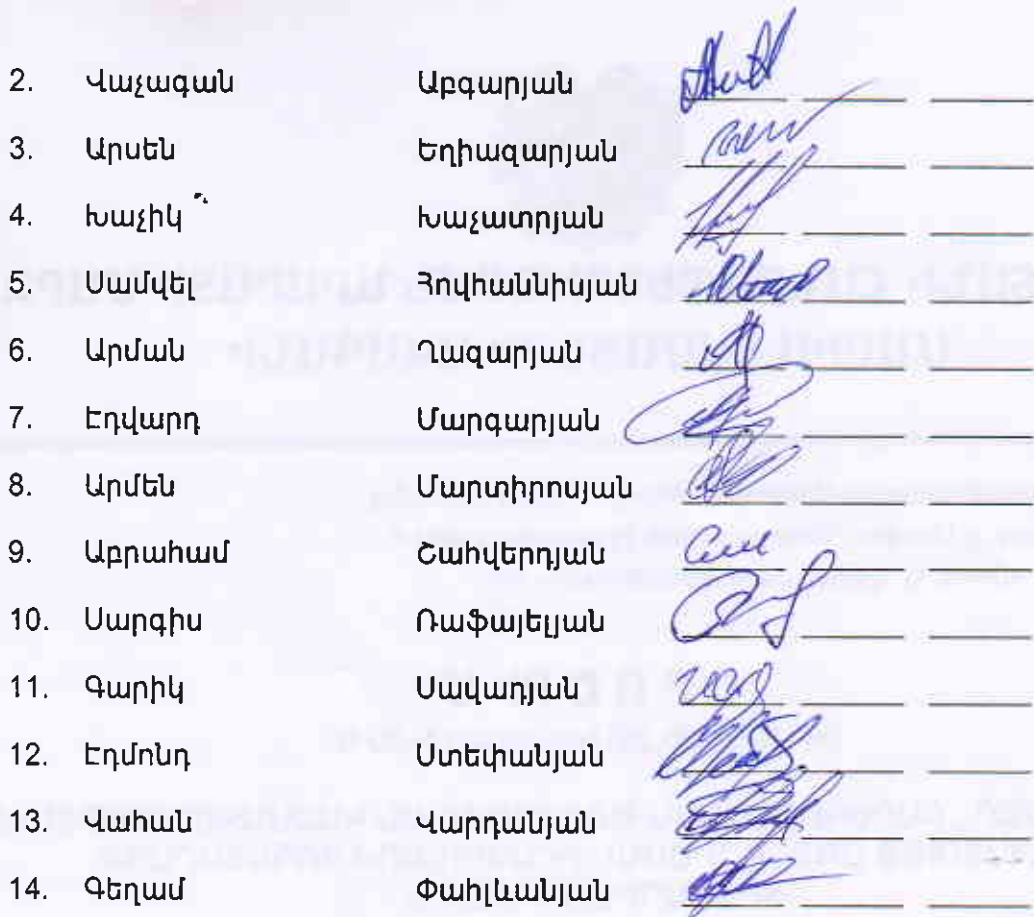 2. Վաչագան Աբգարյան
3. Արսեն Եղիազարյան
4. Խաչիկ Խաչատրյան
5. Սամվել Հովհաննիսյան
6. Արման Ղազարյան
7. Էդվարդ Մարգարյան
8. Արմեն Մարտիրոսյան
9. Աբրահամ Շահվերդյան
10. Սարգիս Ռաֆայելյան
11. Գարիկ Սավադյան
12. Էդմոնդ Ստեփանյան
13. Վահան Վարդանյան
14. Գեղամ Փահլևանյան